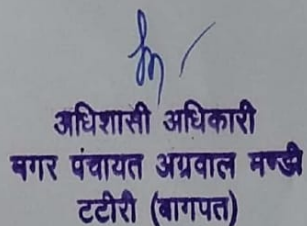 अधिशासी अधिकारी
नगर पंचायत अग्रवाल मण्डी
टटीरी (बागपत)